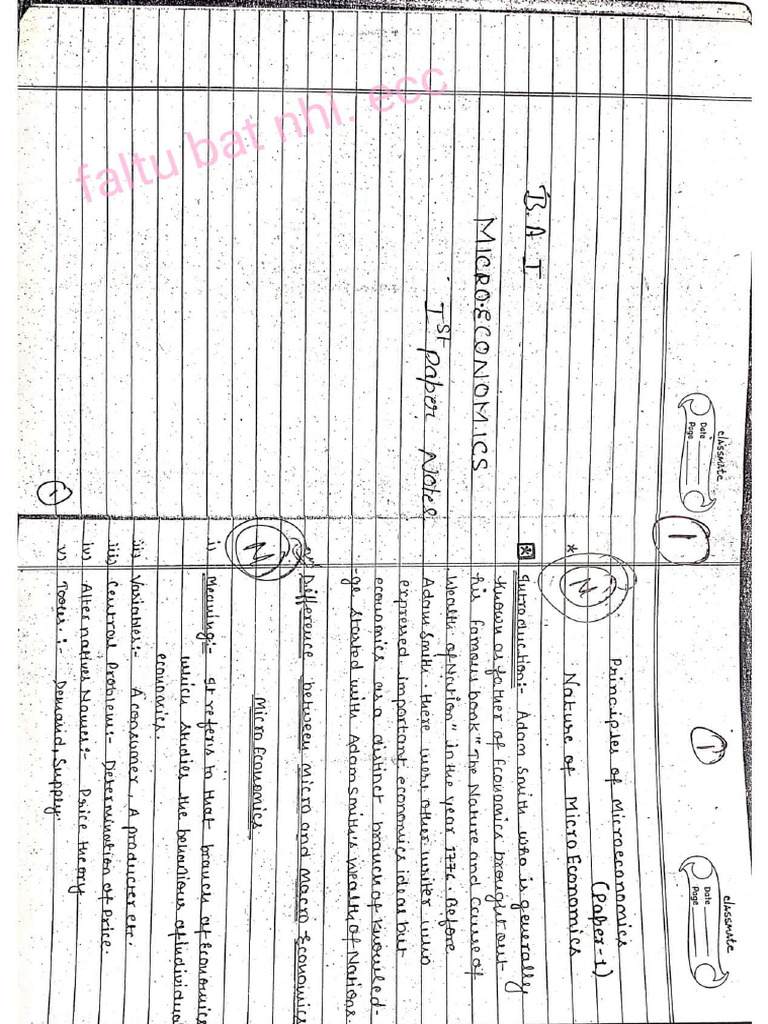 faltu bat nhi. ecc
classmate
Date
Page
1
B.A I
MICRO-ECONOMICS
Ist Paper Notes
1
classmate
Date
Page
1
Principles of Microeconomics
(Paper-1)
N
* Nature of Micro Economics
* Introduction:- Adam Smith who is generally
known as father of Economics brought out
his famous book "The Nature and Cause of
Wealth of Nation" in the year 1776. Before
Adam Smith. there were other writer who
expressed important economics ideas but
economics as a distinct branch of knowled-
-ge started with Adam Smith's Wealth of Nations.
Difference between Micro and Macro Economics
N
Micro Economics
i) Meaning:- It refers to that branch of Economics
which studies the behaviour of individual
economics.
ii) Variables:- A consumer, A producter etc.
iii) Central Problems:- Determination of Price.
iv) Alternatives Names:- Price theory
v) Tooles:- Demand, Supply